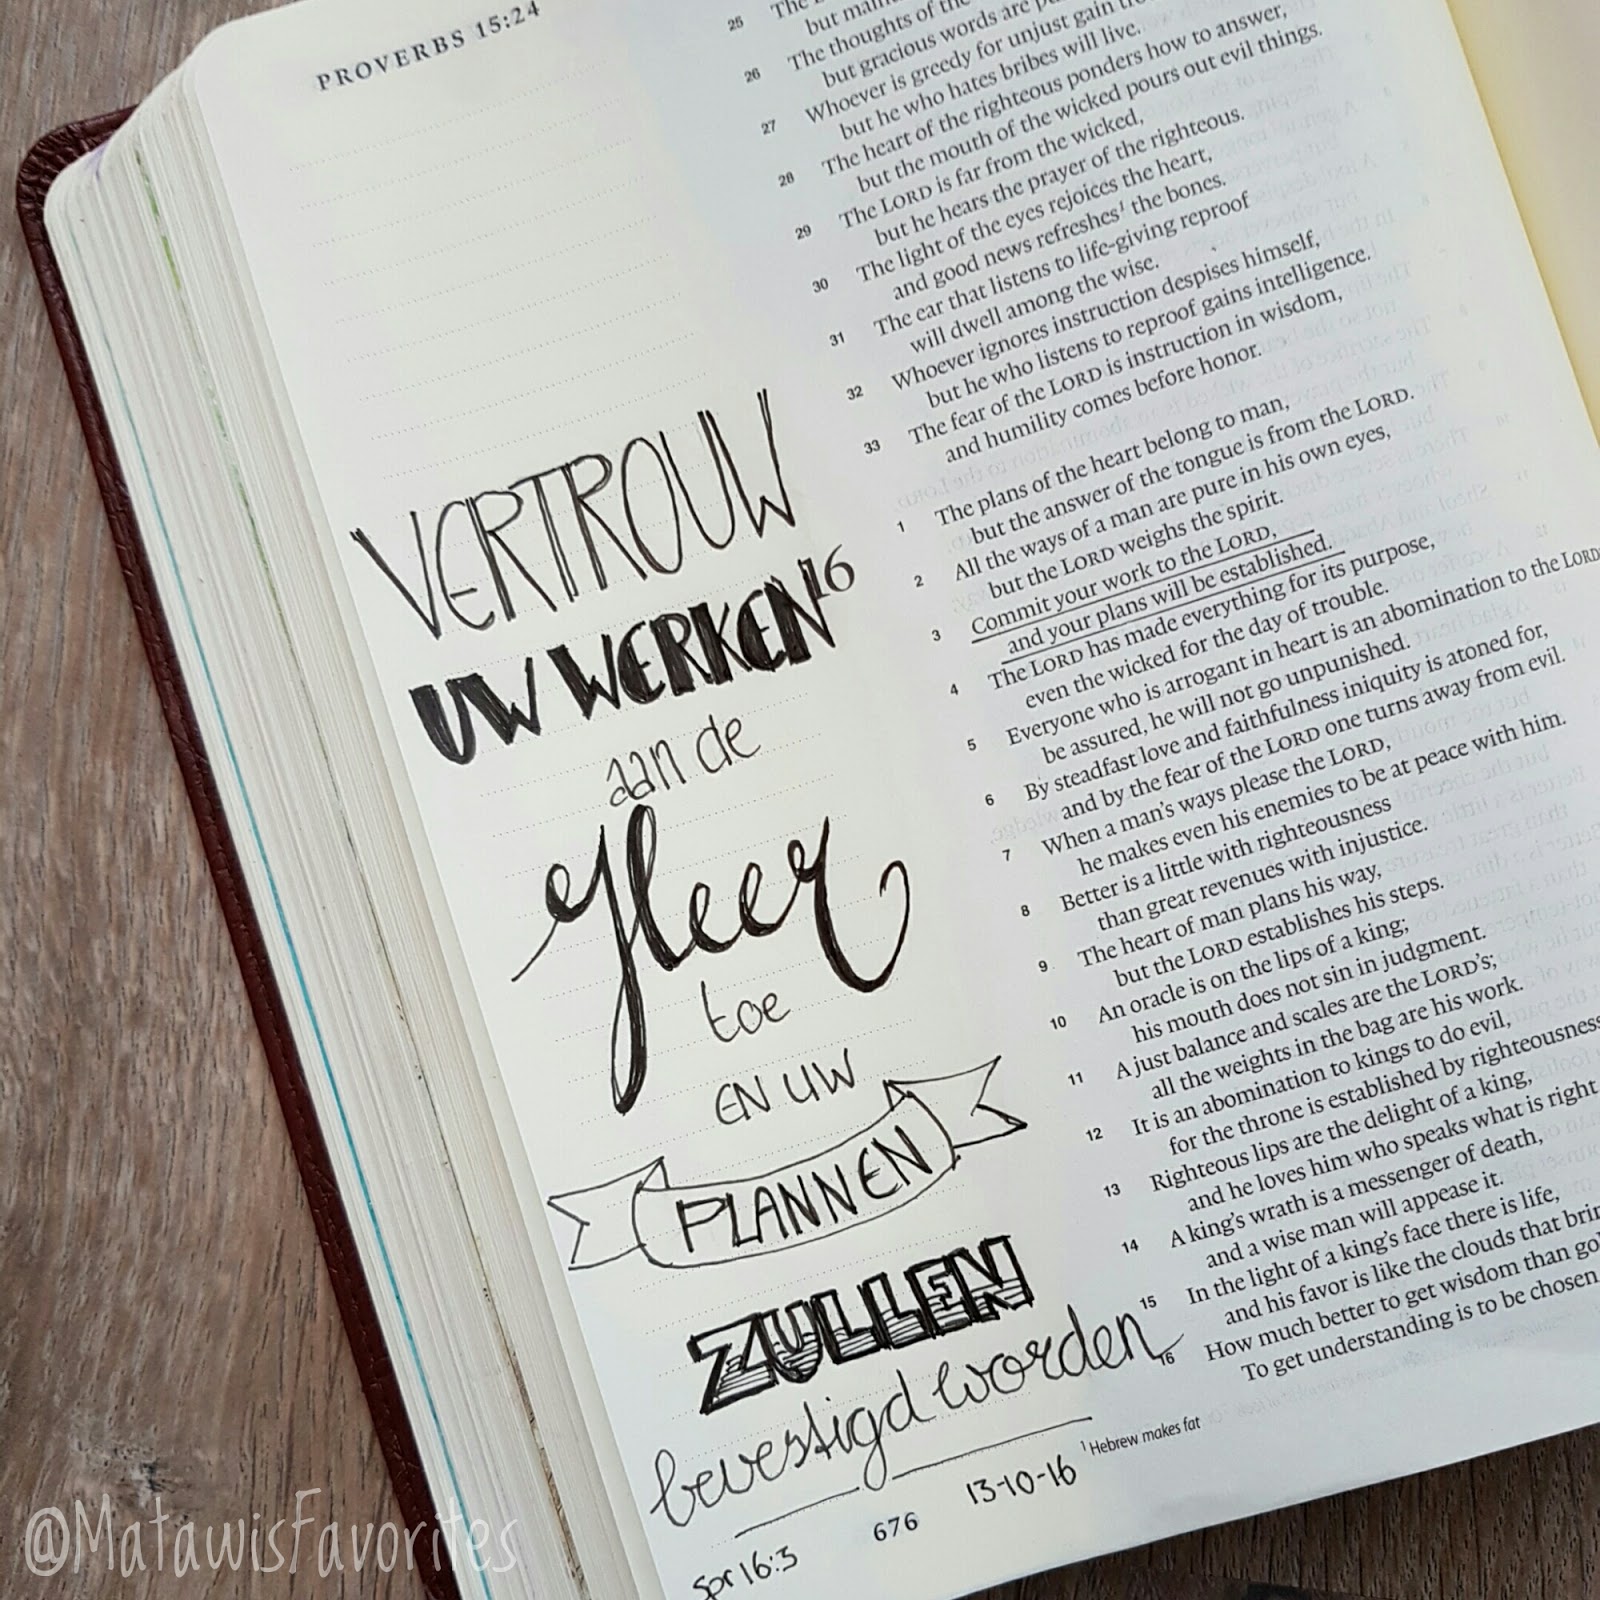 PROVERBS 15:24
VERTROUW
UW WERKEN
aan de
Heer
toe
EN UW
PLANNEN
ZULLEN
bevestigd worden
spr 16:3
676
13-10-16
25 The
but
26 The thoughts of the
but gracious words are
27 Whoever is greedy for unjust gain
but he who hates bribes will live.
28 The heart of the righteous ponders how to answer,
but the mouth of the wicked pours out evil things.
29 The LORD is far from the wicked,
but he hears the prayer of the righteous.
30 The light of the eyes rejoices the heart,
and good news refreshes¹ the bones.
31 The ear that listens to life-giving reproof
will dwell among the wise.
32 Whoever ignores instruction despises himself,
but he who listens to reproof gains intelligence.
33 The fear of the LORD is instruction in wisdom,
and humility comes before honor.
16
1 The plans of the heart belong to man,
but the answer of the tongue is from the LORD.
2 All the ways of a man are pure in his own eyes,
but the LORD weighs the spirit.
3 Commit your work to the LORD,
and your plans will be established.
4 The LORD has made everything for its purpose,
even the wicked for the day of trouble.
5 Everyone who is arrogant in heart is an abomination to the LORD
be assured, he will not go unpunished.
6 By steadfast love and faithfulness iniquity is atoned for,
and by the fear of the LORD one turns away from evil.
7 When a man's ways please the LORD,
he makes even his enemies to be at peace with him.
8 Better is a little with righteousness
than great revenues with injustice.
9 The heart of man plans his way,
but the LORD establishes his steps.
10 An oracle is on the lips of a king;
his mouth does not sin in judgment.
11 A just balance and scales are the LORD's;
all the weights in the bag are his work.
12 It is an abomination to kings to do evil,
for the throne is established by righteousness
13 Righteous lips are the delight of a king,
and he loves him who speaks what is right
14 A king's wrath is a messenger of death,
and a wise man will appease it.
15 In the light of a king's face there is life,
and his favor is like the clouds that
16 How much better to get wisdom than
To get understanding is to be chosen
¹ Hebrew makes fat
@MatawisFavorites